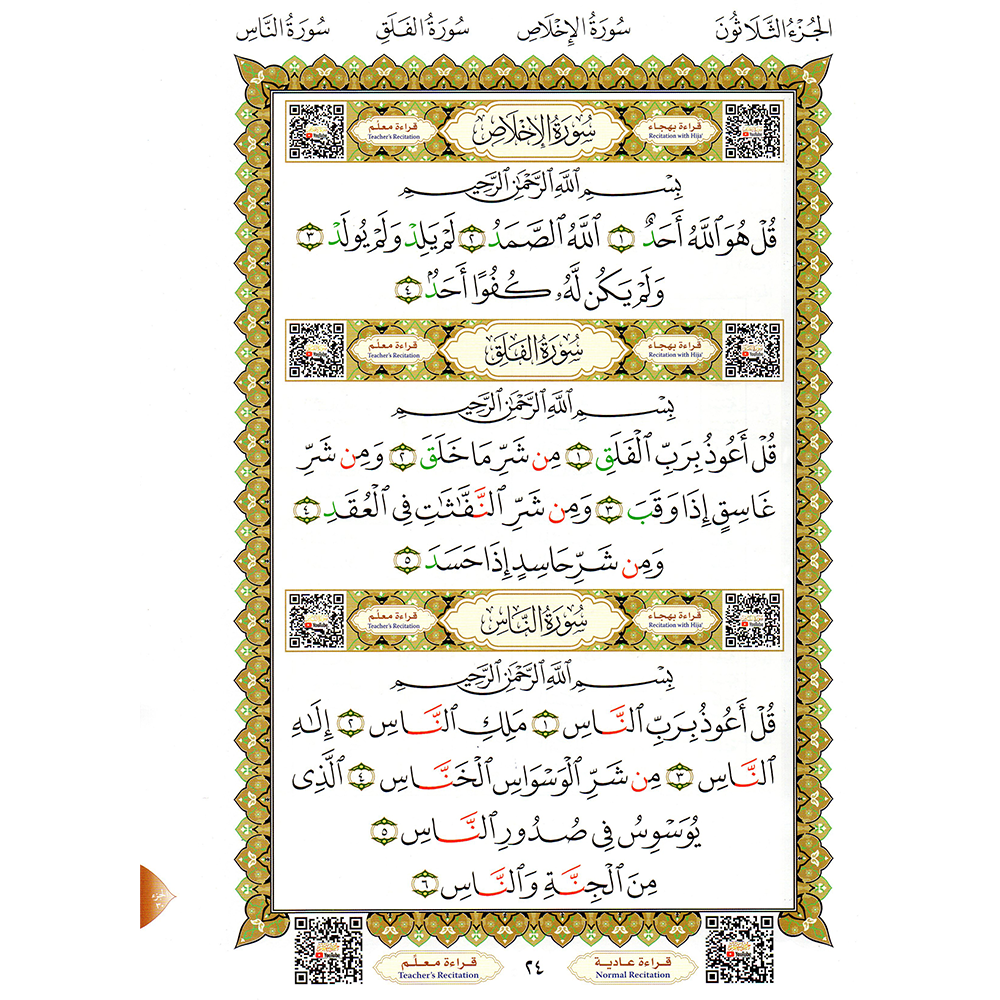 الجُزْءُ الثَّلَاثُونَ سُورَةُ الإِخْلَاصِ سُورَةُ الفَلَقِ سُورَةُ النَّاسِ
قراءة بهجاء سُورَةُ الإِخْلَاصِ قراءة معلم
Recitation with Hija' Teacher's Recitation
بِسْمِ ٱللَّهِ ٱلرَّحْمَٰنِ ٱلرَّحِيمِ
قُلْ هُوَ ٱللَّهُ أَحَدٌ ١ ٱللَّهُ ٱلصَّمَدُ ٢ لَمْ يَلِدْ وَلَمْ يُولَدْ ٣
وَلَمْ يَكُن لَّهُۥ كُفُوًا أَحَدٌۢ ٤
قراءة بهجاء سُورَةُ الفَلَقِ قراءة معلم
Recitation with Hija' Teacher's Recitation
بِسْمِ ٱللَّهِ ٱلرَّحْمَٰنِ ٱلرَّحِيمِ
قُلْ أَعُوذُ بِرَبِّ ٱلْفَلَقِ ١ مِن شَرِّ مَا خَلَقَ ٢ وَمِن شَرِّ
غَاسِقٍ إِذَا وَقَبَ ٣ وَمِن شَرِّ ٱلنَّفَّٰثَٰتِ فِى ٱلْعُقَدِ ٤
وَمِن شَرِّ حَاسِدٍ إِذَا حَسَدَ ٥
قراءة بهجاء سُورَةُ النَّاسِ قراءة معلم
Recitation with Hija' Teacher's Recitation
بِسْمِ ٱللَّهِ ٱلرَّحْمَٰنِ ٱلرَّحِيمِ
قُلْ أَعُوذُ بِرَبِّ ٱلنَّاسِ ١ مَلِكِ ٱلنَّاسِ ٢ إِلَٰهِ
ٱلنَّاسِ ٣ مِن شَرِّ ٱلْوَسْوَاسِ ٱلْخَنَّاسِ ٤ ٱلَّذِى
يُوَسْوِسُ فِى صُدُورِ ٱلنَّاسِ ٥
مِنَ ٱلْجِنَّةِ وَٱلنَّاسِ ٦
قراءة عادية ٢٤ قراءة معلّم
Normal Recitation Teacher's Recitation